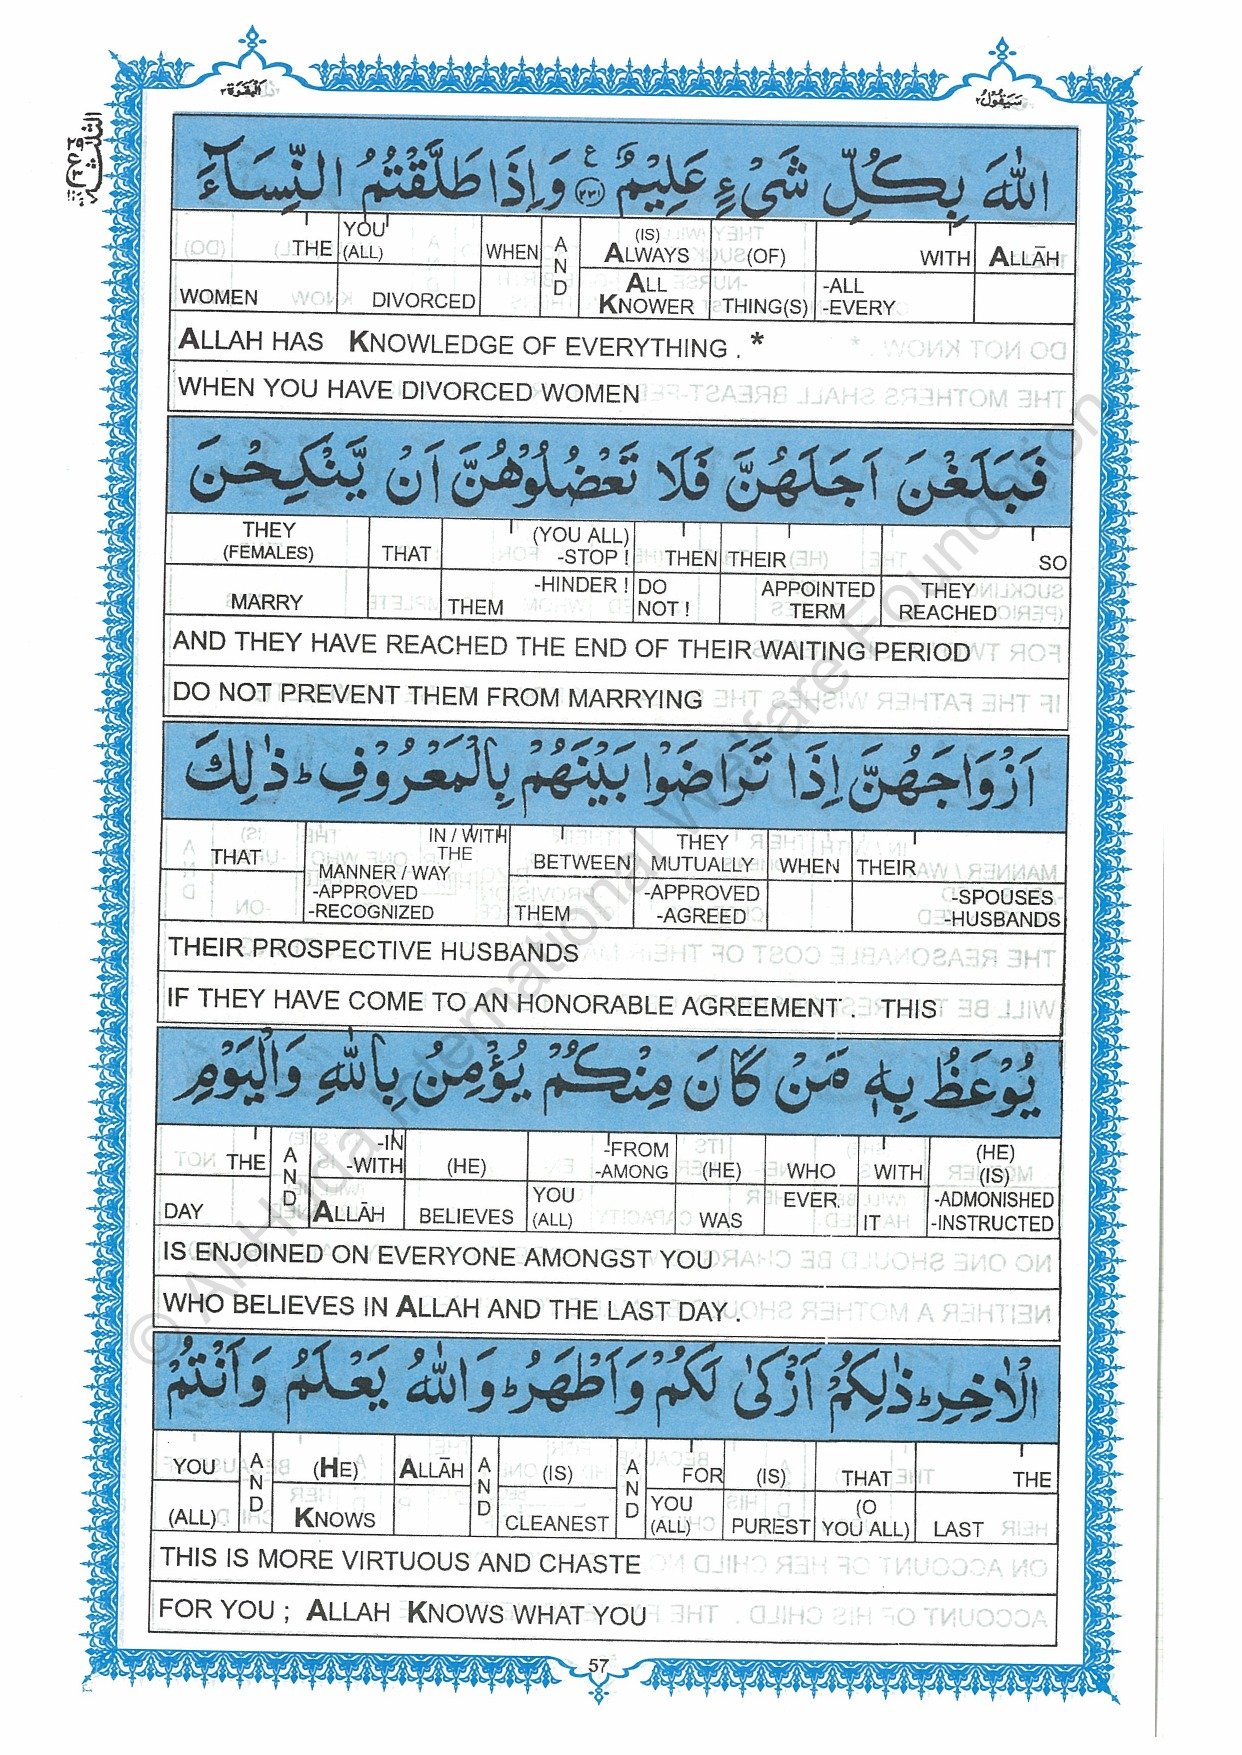 البقرة ٢
سيقول ٢
الثلثة
اللّٰهَ بِكُلِّ شَیْءٍ عَلِيْمٌ ﴿٢٣١﴾ ع وَاِذَا طَلَّقْتُمُ النِّسَآءَ
THE YOU (ALL) WHEN AND (IS) ALWAYS (OF) WITH ALLĀH
WOMEN DIVORCED ALL KNOWER THING(S) -ALL -EVERY
ALLAH HAS KNOWLEDGE OF EVERYTHING . *
WHEN YOU HAVE DIVORCED WOMEN
فَبَلَغْنَ اَجَلَهُنَّ فَلَا تَعْضُلُوْهُنَّ اَنْ يَّنْكِحْنَ
THEY (FEMALES) THAT (YOU ALL) -STOP ! THEN THEIR SO
MARRY THEM -HINDER ! DO NOT ! APPOINTED TERM THEY REACHED
AND THEY HAVE REACHED THE END OF THEIR WAITING PERIOD
DO NOT PREVENT THEM FROM MARRYING
اَزْوَاجَهُنَّ اِذَا تَرَاضَوْا بَيْنَهُمْ بِالْمَعْرُوْفِ ؕ ذٰلِكَ
THAT IN / WITH THE BETWEEN THEY MUTUALLY WHEN THEIR
MANNER / WAY -APPROVED -RECOGNIZED THEM -APPROVED -AGREED -SPOUSES -HUSBANDS
THEIR PROSPECTIVE HUSBANDS
IF THEY HAVE COME TO AN HONORABLE AGREEMENT . THIS
يُوْعَظُ بِهٖ مَنْ كَانَ مِنْكُمْ يُؤْمِنُ بِاللّٰهِ وَالْيَوْمِ
THE AND -IN -WITH (HE) -FROM -AMONG (HE) WHO WITH (HE) (IS)
DAY ALLĀH BELIEVES YOU (ALL) WAS EVER IT -ADMONISHED -INSTRUCTED
IS ENJOINED ON EVERYONE AMONGST YOU
WHO BELIEVES IN ALLAH AND THE LAST DAY .
الْاٰخِرِ ؕ ذٰلِكُمْ اَزْكٰى لَكُمْ وَاَطْهَرُ ؕ وَاللّٰهُ يَعْلَمُ وَاَنْتُمْ
YOU AND (HE) ALLĀH AND (IS) AND FOR (IS) THAT THE
(ALL) KNOWS CLEANEST YOU (ALL) PUREST (O YOU ALL) LAST
THIS IS MORE VIRTUOUS AND CHASTE
FOR YOU ; ALLAH KNOWS WHAT YOU
57
© Al-Huda International Welfare Foundation